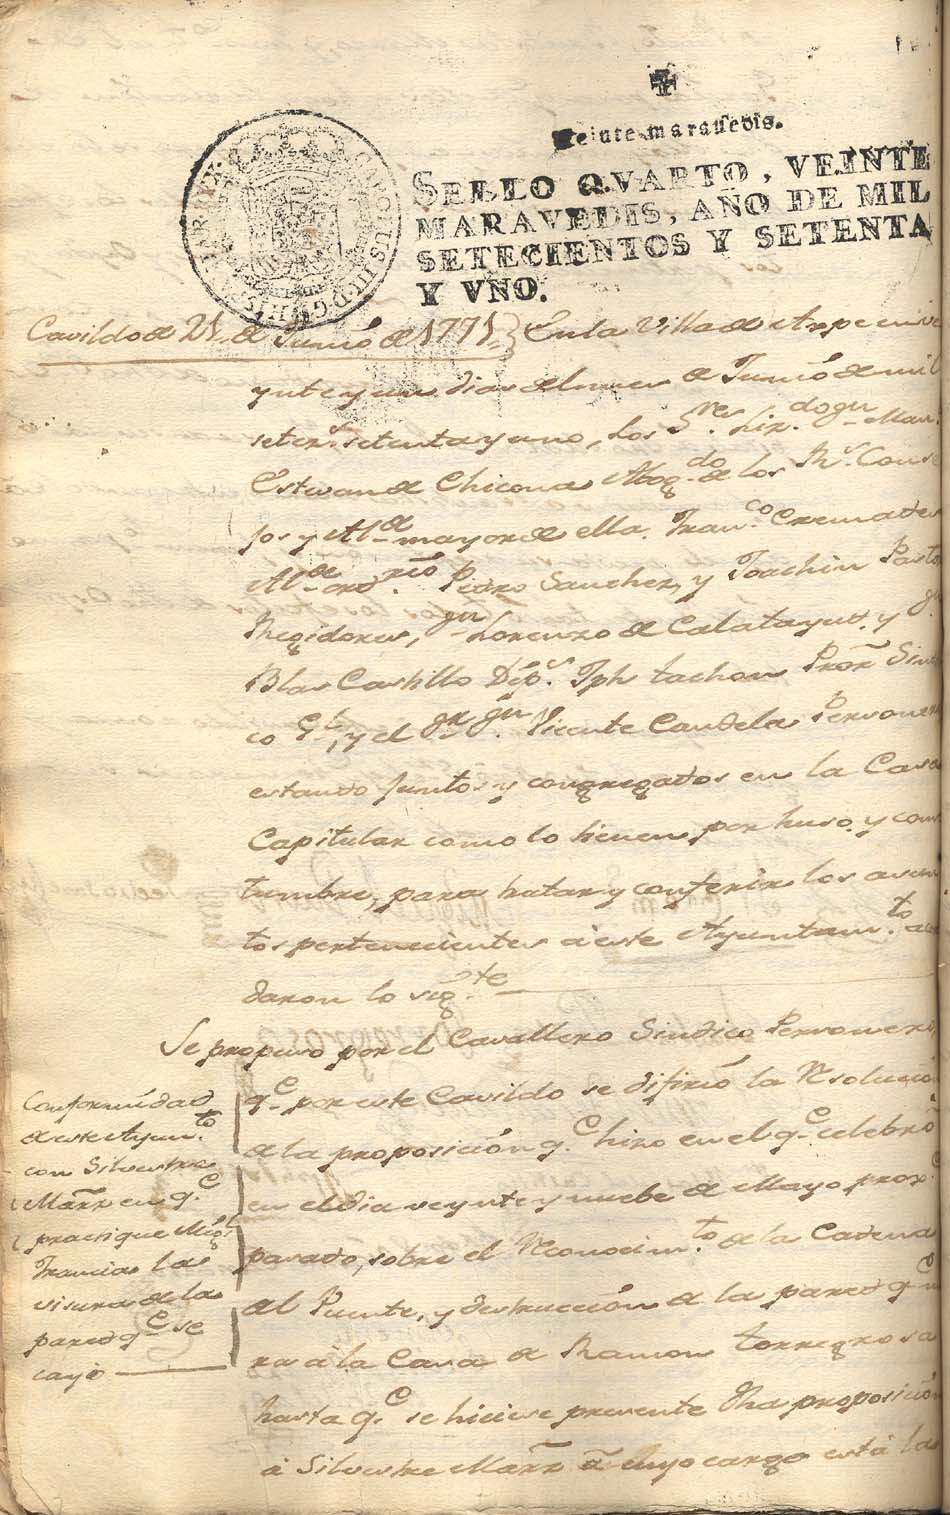 Veinte maravedis.
SELLO QVARTO, VEINTE
MARAVEDIS, AÑO DE MIL
SETECIENTOS Y SETENTA
Y VNO.
CAROLUS III D G HISPANIAR REX
Cavildo de 21 de Junio de 1771 En la Villa de Aspe en ve
ynte y un dias del mes de Junio de mil
setecs. setenta y uno, los Sres. Lizdo. Dn. Manl.
Estevan de Chicona Abogdo. de los Rs. Conse
jos y Alde. mayor de ella. Franco. Cremades
Alde. ordrio. Pedro Sanchez, y Joachin Pasto
Regidores, Dn. Lorenzo de Calatayud. y Dn.
Blas Castillo Dips. Jph tachon Pror. Sindi
co Gl, y el Dr. Dn. Vicente Candela Personero
estando juntos y congregados en la Casa
Capitular como lo tienen por huso, y cons
tumbre, para tratar y conferir los asun
tos pertenecientes a este Ayuntamto. acor
daron lo sigte.
Se propuso por el Cavallero Sindico Personero
qe. por este Cavildo se difirió la Resolució
de la proposición qe. hizo en el qe. celebró
en el dia veynte y nuebe de Mayo prox.
pasado, sobre el Reconocimto. de la Cadena
del Puente, y destrucción de la pared qe.
ra à la Casa de Ramon torregrosa
hasta qe. se hiciese presente dha proposición
à Silvestre Marz à cuyo cargo está la
Conformidad
de este Ayunto.
con Silvestre
Marz en qe.
practique Migl
Francia la
visura de la
pared qe se
cayó